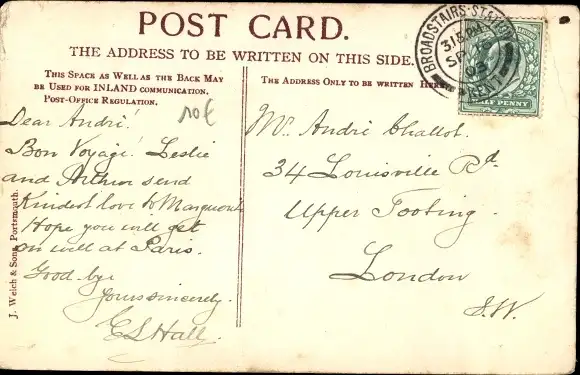 POST CARD.
THE ADDRESS TO BE WRITTEN ON THIS SIDE.
THIS SPACE AS WELL AS THE BACK MAY
BE USED FOR INLAND COMMUNICATION.
POST-OFFICE REGULATION.
10€
Dear André!
Bon Voyage! Leslie
and Arthur send
Kindest love to Marguerite
Hope you will get
on well at Paris.
Good bye
yours sincerely.
E L Hall.
J. Welch & Sons, Portsmouth.
THE ADDRESS ONLY TO BE WRITTEN HERE.
Mr. André Challot.
34 Louisville Rd.
Upper Tooting.
London
S.W.
BROADSTAIRS
SP
03
KENT
HALF PENNY